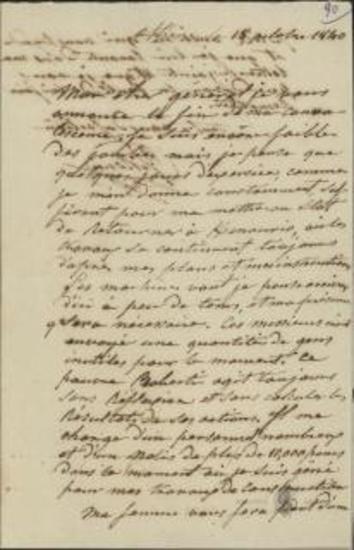 90
18 octobre 1840
Mon cher général, je vous
annonce la fin de ma conva
lescence, je suis encore faible
des jambes mais je pense que
quelques jours d'exercice, comme
je m'en donne constamment suf
firont pour me mettre en état
de retourner à, où les
travaux se continuent toujours
d'après mes plans et mes instructions
Les machines vont je pense arriver
d'ici à peu de tems, et ma présence
y sera nécessaire. Ces messieurs m'ont
envoyé une quantité de gens
inutiles pour le moment. Ce
pauvre Roberti agit toujours
sans réflexion et sans calculer les
résultats de ses actions. Il me
charge d'un personnel nombreux
et d'un de plus de 10,000
dans le moment où je suis gêné
pour mes travaux de construction
Ma femme vous fera